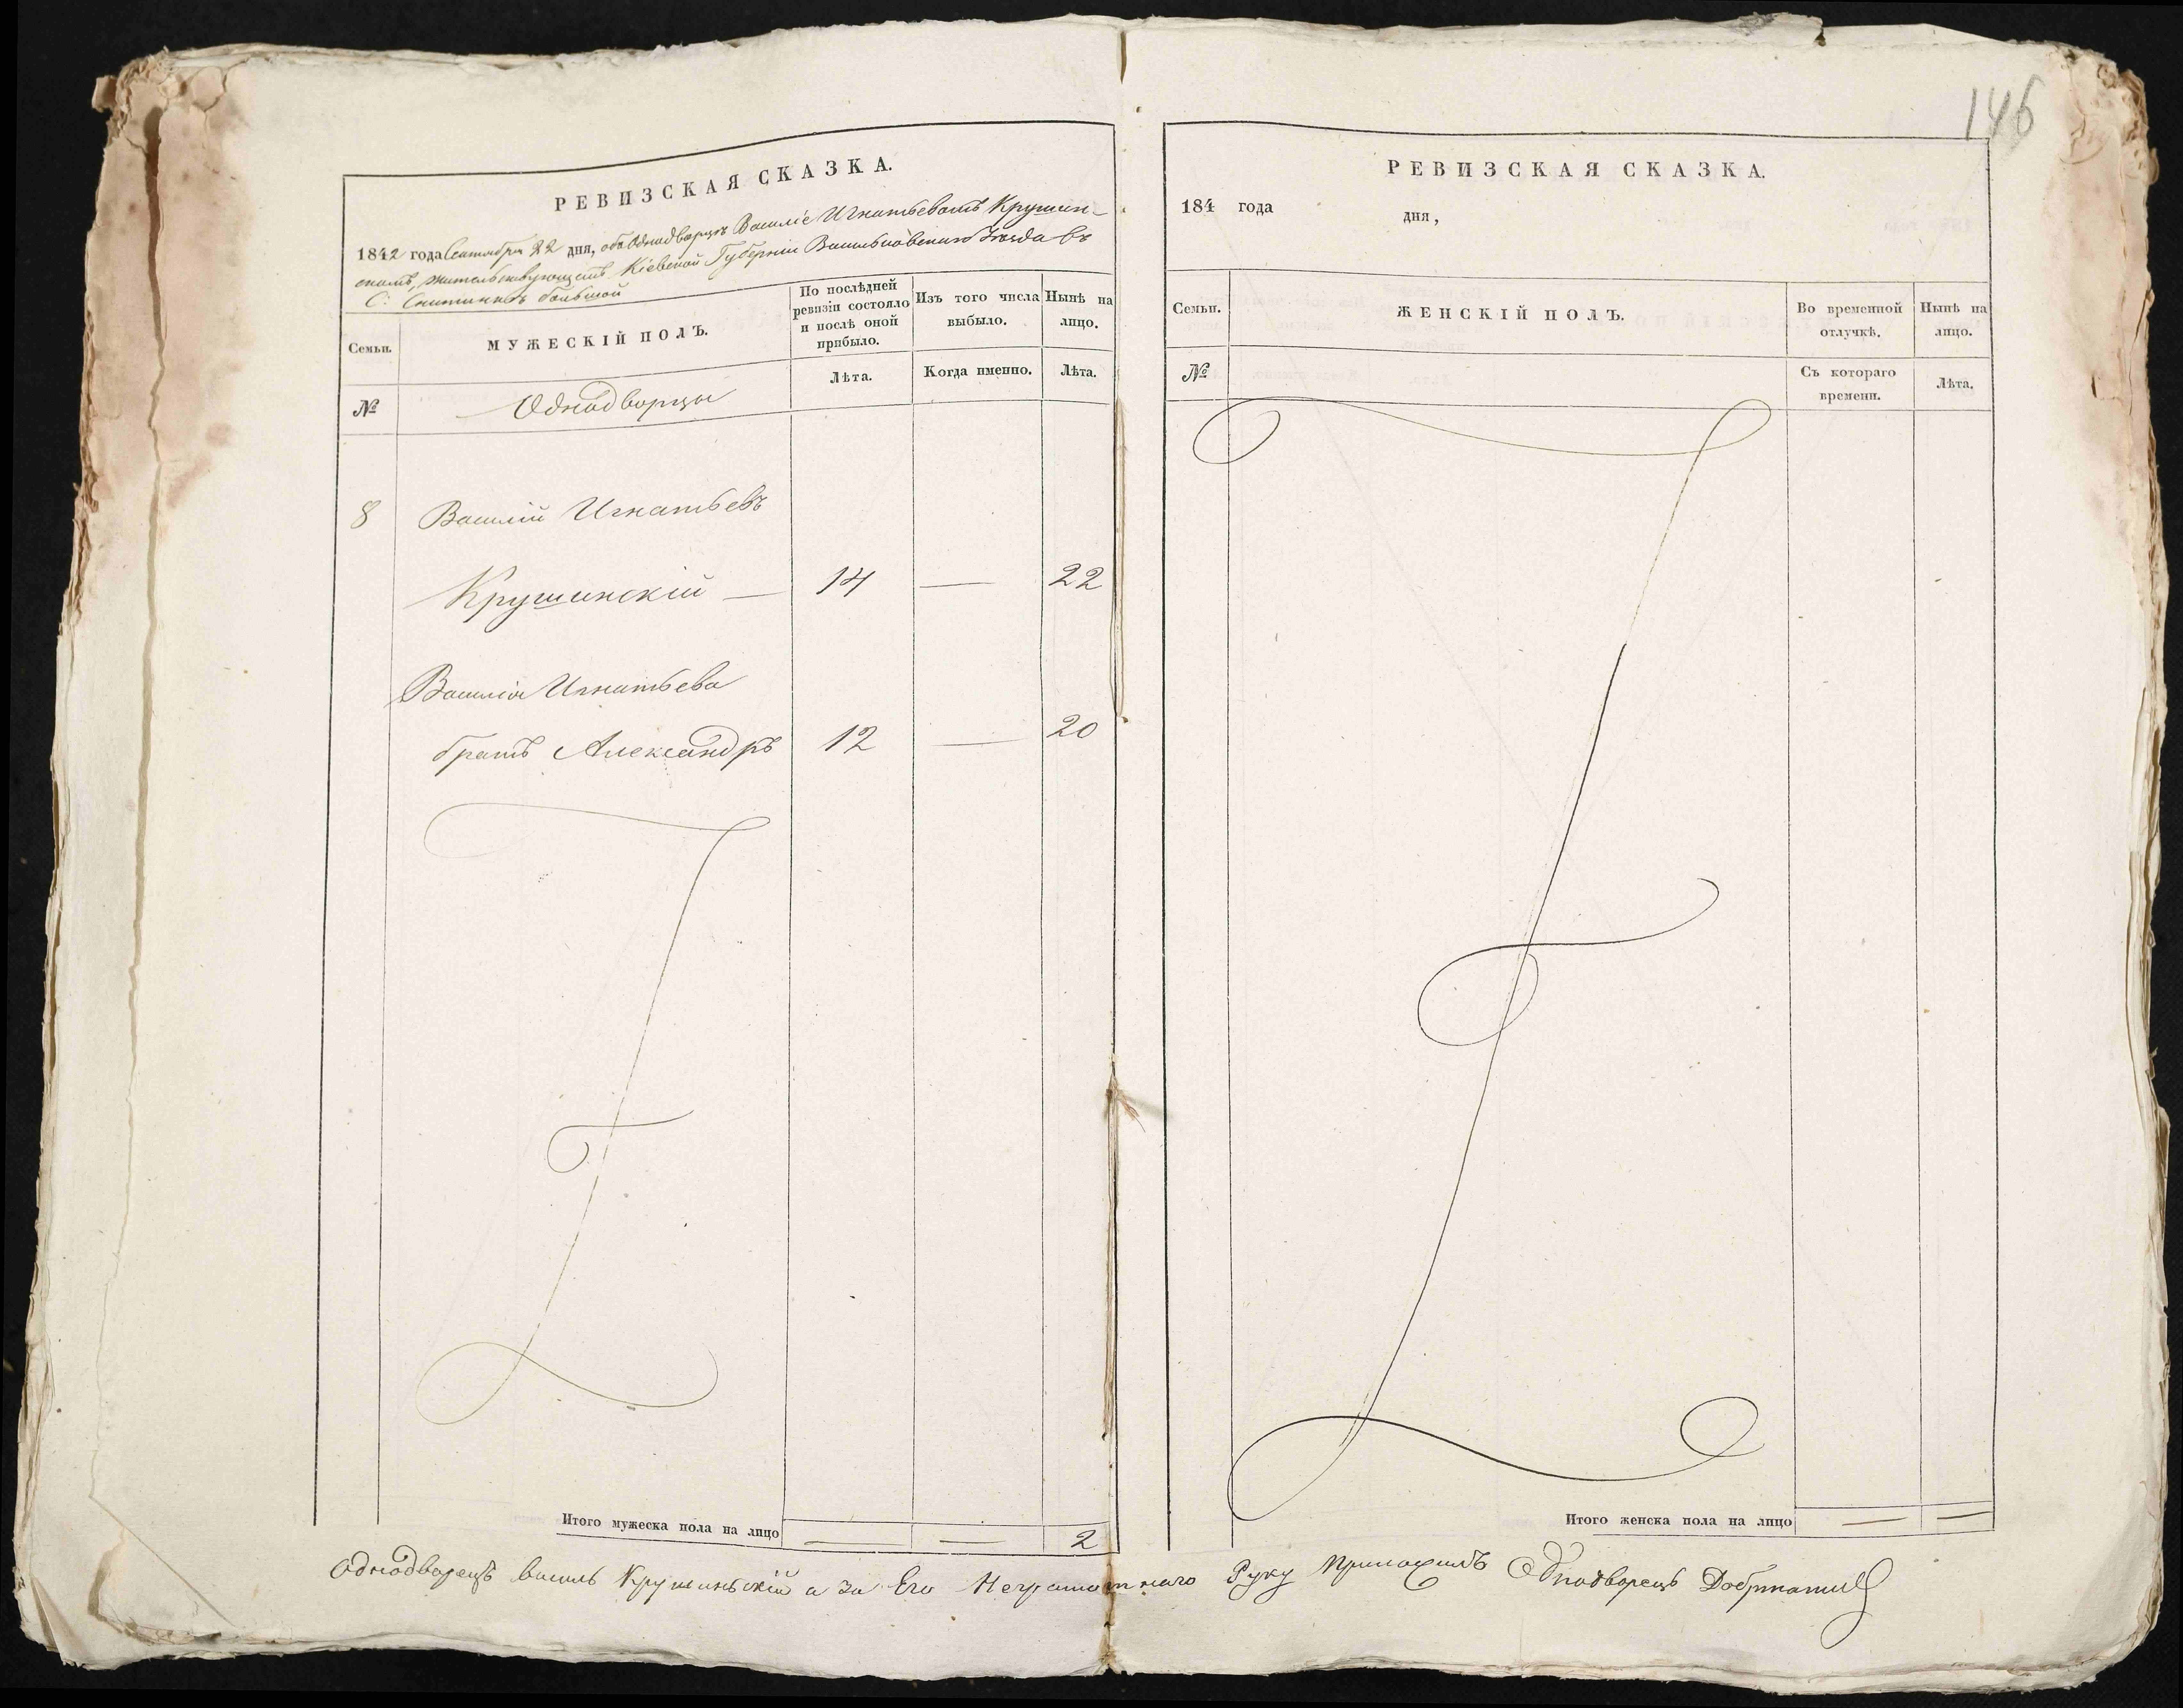 146
РЕВИЗСКАЯ СКАЗКА.
1842 года Сентября 22 дня, объ Однодворцѣ Василіе Игнатьевомъ Крушин-
скомъ, жительствующемъ Кіевской Губерніи Васильковскаго Уезда въ
С: большой
Семьи.
МУЖЕСКІЙ ПОЛЪ.
По послѣдней
ревизіи состояло
и послѣ оной
прибыло.
Изъ того числа
выбыло.
Нынѣ на
лицо.
№
Однодворцы
Лѣта.
Когда именно.
Лѣта.
8 Василій Игнатьевъ
Крушинскій — 14 — 22
Василія Игнатьева
братъ Александръ 12 — 20
Итого мужеска пола на лицо — — 2
РЕВИЗСКАЯ СКАЗКА.
184 года
дня,
Семьи.
ЖЕНСКІЙ ПОЛЪ.
Во временной
отлучкѣ.
Нынѣ на
лицо.
№
Съ котораго
времени.
Лѣта.
Итого женска пола на лицо — —
Однодворецъ василь Крушиньскій а за Его Неграмотнаго Руку Приложилъ Однодворецъ